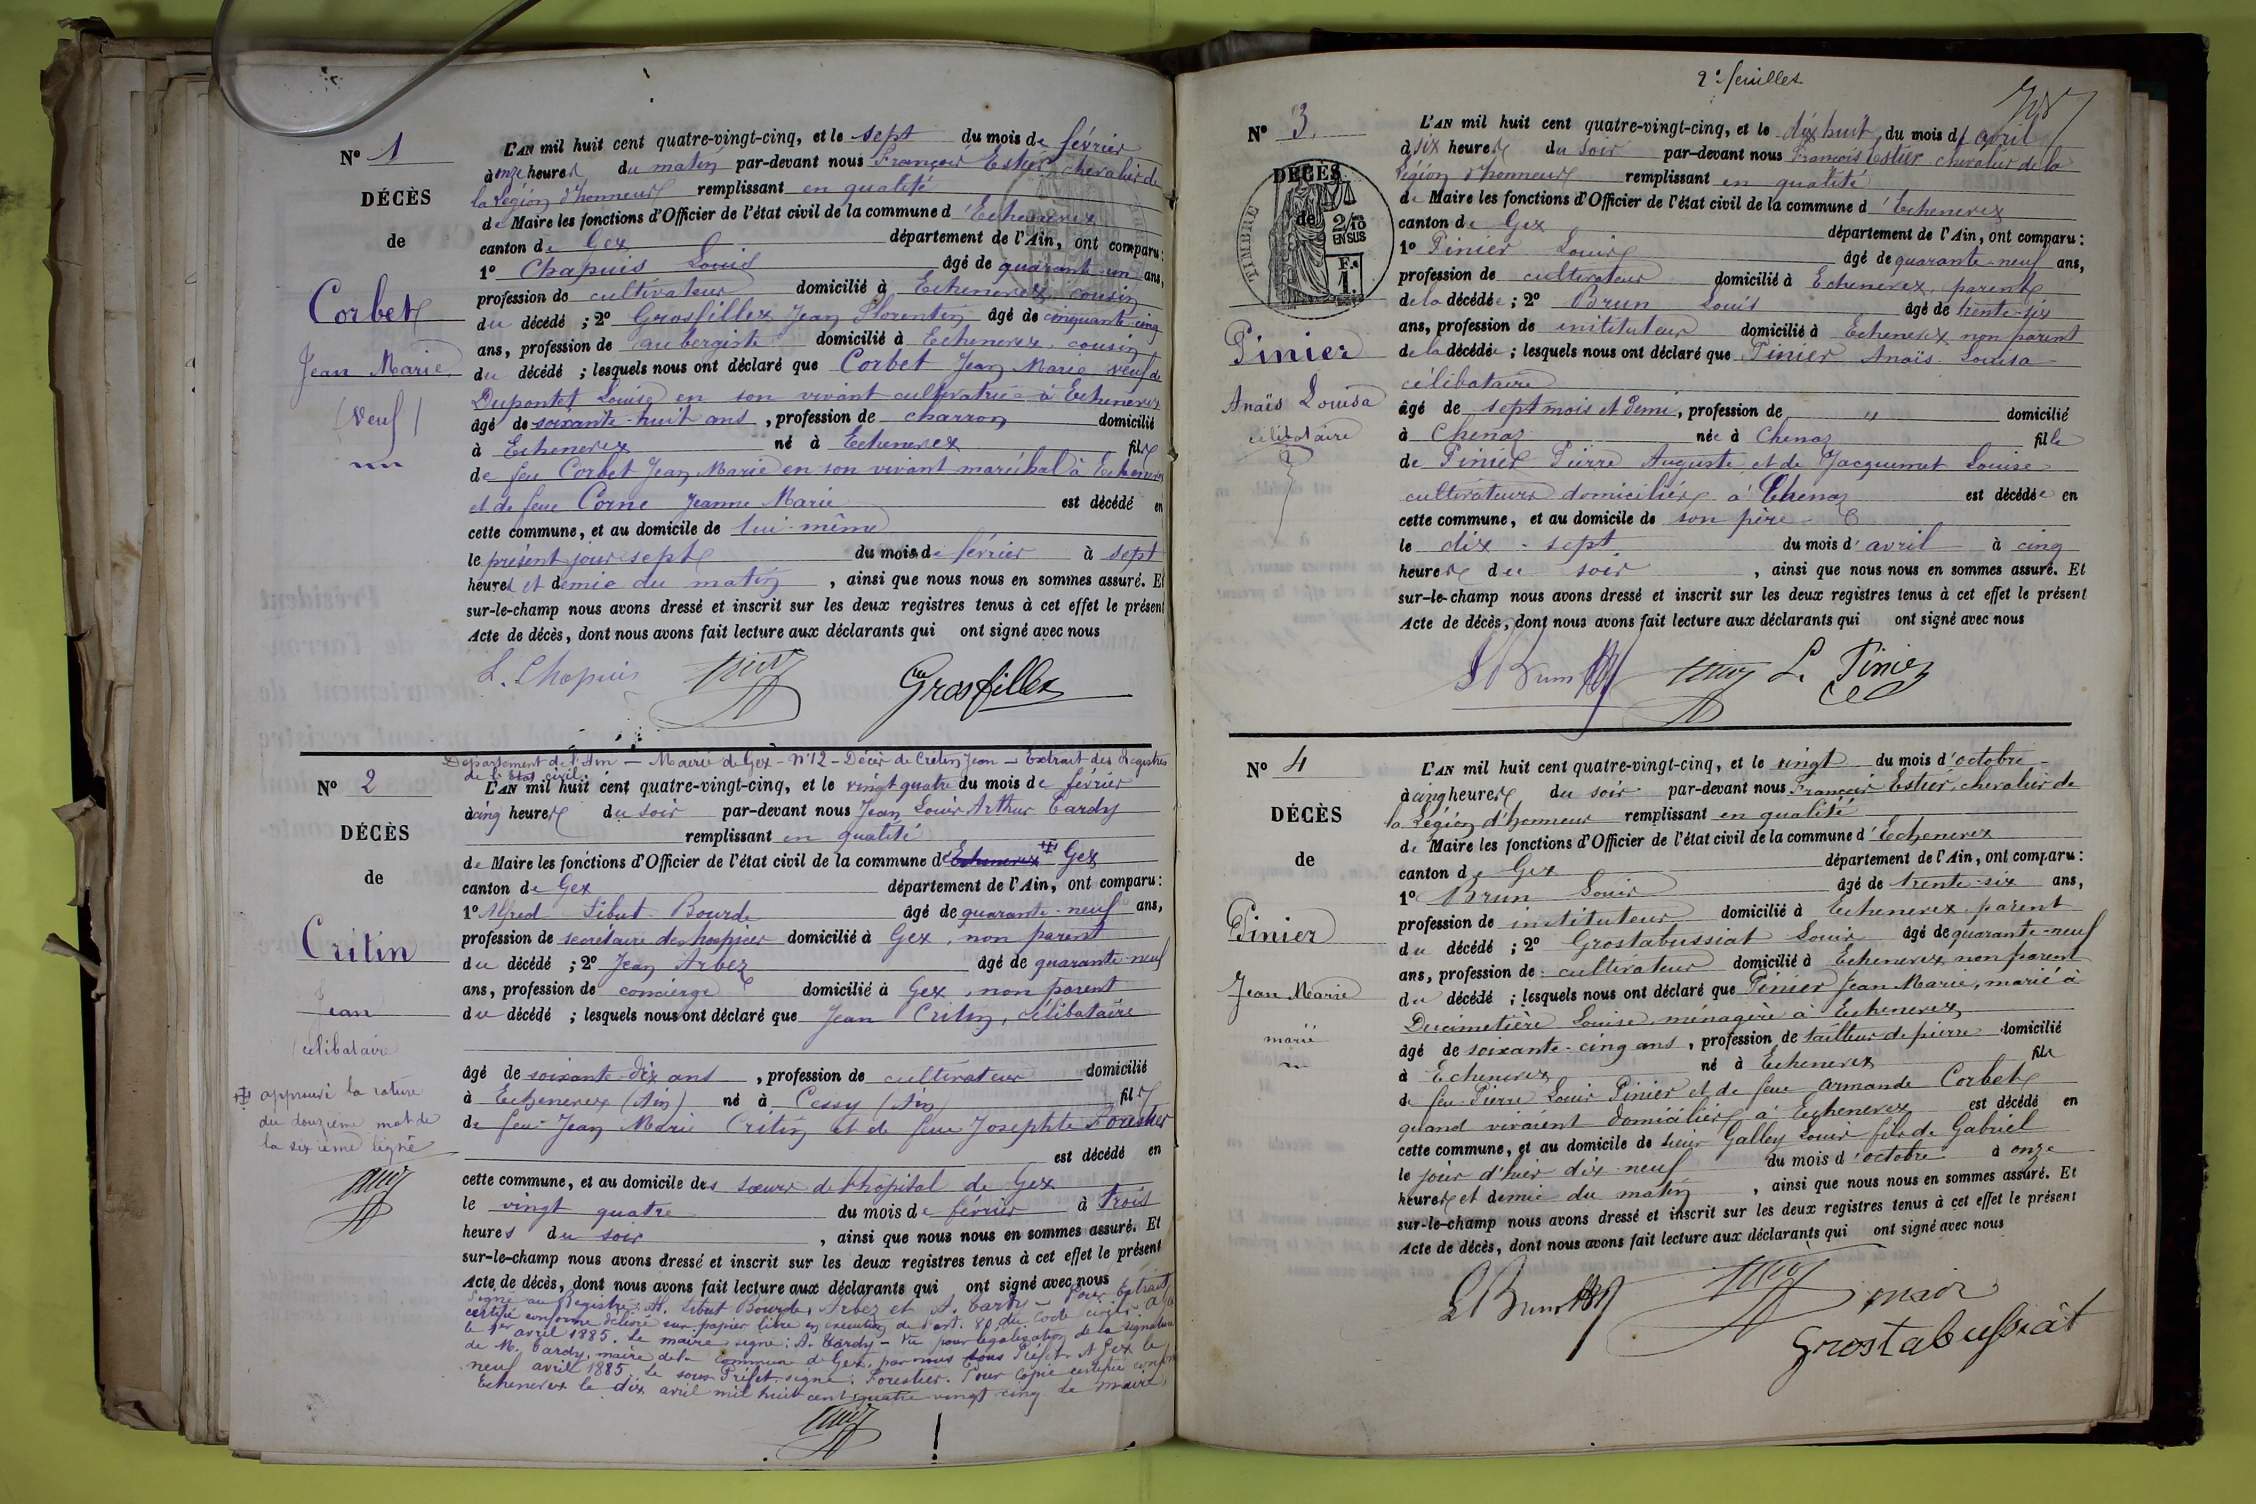 N° 1
DÉCÈS
de
Corbet
Jean Marie
(Veuf)
L'AN mil huit cent quatre-vingt-cinq, et le sept du mois de février
à onze heures du matin par-devant nous François Estier chevalier de
la Légion d'honneur remplissant en qualité
de Maire les fonctions d'Officier de l'état civil de la commune d'Echenevex
canton de Gex département de l'Ain, ont comparu :
1° Chapuis Louis âgé de quarante-un ans,
profession de cultivateur domicilié à Echenevex, cousin
du décédé ; 2° Grosfillex Jean Florentin âgé de cinquante-cinq
ans, profession de aubergiste domicilié à Echenevex, cousin
du décédé ; lesquels nous ont déclaré que Corbet Jean Marie veuf de
Dupontet Louise en son vivant cultivatrice à Echenevex
âgé de soixante-huit ans, profession de charron domicilié
à Echenevex né à Echenevex fils
de feu Corbet Jean Marie en son vivant maréchal à Echenevex
et de feue Corne Jeanne Marie est décédé en
cette commune, et au domicile de lui-même
le présent jour sept du mois de février à sept
heures et demie du matin, ainsi que nous nous en sommes assuré. Et
sur-le-champ nous avons dressé et inscrit sur les deux registres tenus à cet effet le présent
Acte de décès, dont nous avons fait lecture aux déclarants qui ont signé avec nous
L. Chapuis Grosfillex
Département de l'Ain — Mairie de Gex - N°12 - Décès de Critin Jean - Extrait des Registres
de l'Etat civil.
N° 2
DÉCÈS
de
Critin
Jean
célibataire
approuvé la rature
du douzième mot de
la sixième ligne
L'AN mil huit cent quatre-vingt-cinq, et le vingt quatre du mois de février
à cinq heures du soir par-devant nous Jean Louis Arthur Tardy
remplissant en qualité
de Maire les fonctions d'Officier de l'état civil de la commune d'Echenevex Gex
canton de Gex département de l'Ain, ont comparu :
1° Alfred Sibut-Bourde âgé de quarante-neuf ans,
profession de secrétaire des hospices domicilié à Gex, non parent
du décédé ; 2° Jean Arbez âgé de quarante-neuf
ans, profession de concierge domicilié à Gex, non parent
du décédé ; lesquels nous ont déclaré que Jean Critin, célibataire
âgé de soixante-dix ans, profession de cultivateur domicilié
à Echenevex (Ain) né à Cessy (Ain) fils
de feu Jean Marie Critin et de feue Josephte Forestier
est décédé en
cette commune, et au domicile des sœurs de l'hôpital de Gex
le vingt quatre du mois de février à trois
heures du soir, ainsi que nous nous en sommes assuré. Et
sur-le-champ nous avons dressé et inscrit sur les deux registres tenus à cet effet le présent
Acte de décès, dont nous avons fait lecture aux déclarants qui ont signé avec nous
Signé au Registre: A. Sibut Bourde, Arbez et A. Tardy - Pour Extrait
certifié conforme délivré sur papier libre en exécution de l'art. 80 du Code civil
le 1er avril 1885. Le maire signé: A. Tardy - Vu pour légalisation de la signature
de M. Tardy, maire de la commune de Gex, par nous sous Préfet. A Gex le
neuf avril 1885. Le sous-Préfet signé: Forestier. Pour copie certifiée conforme
Echenevex le dix avril mil huit cent quatre-vingt cinq Le maire
2e feuilles
N° 3
DÉCÈS
de
TIMBRE
2/10
EN SUS
Fc
1.
Pinier
Anaïs Louisa
célibataire
L'AN mil huit cent quatre-vingt-cinq, et le dix huit du mois d'avril
à six heures du soir par-devant nous François Estier chevalier de la
Légion d'honneur remplissant en qualité
de Maire les fonctions d'Officier de l'état civil de la commune d'Echenevex
canton de Gex département de l'Ain, ont comparu :
1° Pinier Louis âgé de quarante-neuf ans,
profession de cultivateur domicilié à Echenevex, parent
de la décédée ; 2° Brun Louis âgé de trente-six
ans, profession de instituteur domicilié à Echenevex non parent
de la décédée ; lesquels nous ont déclaré que Pinier Anaïs Louisa
célibataire
âgé de sept mois et demi, profession de " domicilié
à Chenaz née à Chenaz fille
de Pinier Pierre Auguste et de Jacquemet Louise
cultivateurs domiciliés à Chenaz est décédée en
cette commune, et au domicile de son père
le dix-sept du mois d'avril à cinq
heures du soir, ainsi que nous nous en sommes assuré. Et
sur-le-champ nous avons dressé et inscrit sur les deux registres tenus à cet effet le présent
Acte de décès, dont nous avons fait lecture aux déclarants qui ont signé avec nous
L Brun L. Pinier
N° 4
DÉCÈS
de
Pinier
Jean Marie
marié
L'AN mil huit cent quatre-vingt-cinq, et le vingt du mois d'octobre
à cinq heures du soir par-devant nous François Estier, chevalier de
la Légion d'honneur remplissant en qualité
de Maire les fonctions d'Officier de l'état civil de la commune d'Echenevex
canton de Gex département de l'Ain, ont comparu :
1° Brun Louis âgé de trente-six ans,
profession de instituteur domicilié à Echenevex parent
du décédé ; 2° Grostabussiat Louis âgé de quarante-neuf
ans, profession de cultivateur domicilié à Echenevex, non parent
du décédé ; lesquels nous ont déclaré que Pinier Jean Marie, marié à
Ducimetière Louise ménagère à Echenevex
âgé de soixante-cinq ans, profession de tailleur de pierre domicilié
à Echenevex né à Echenevex fils
de feu Pierre Louis Pinier et de feue Armande Corbet
quand vivaient domiciliés à Echenevex est décédé en
cette commune, et au domicile de sieur Galley Louis fils de Gabriel
le jour d'hier dix-neuf du mois d'octobre à onze
heures et demie du matin, ainsi que nous nous en sommes assuré. Et
sur-le-champ nous avons dressé et inscrit sur les deux registres tenus à cet effet le présent
Acte de décès, dont nous avons fait lecture aux déclarants qui ont signé avec nous
L Brun maire
Grostabussiat